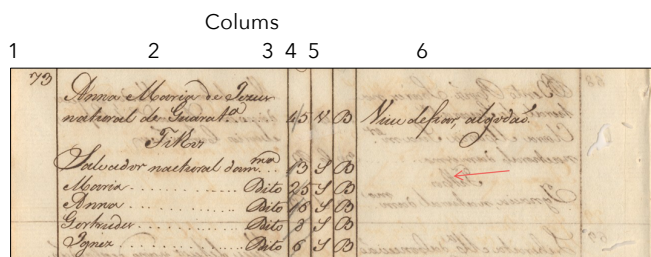 Colums
1 2 3 4 5 6
73
Anna Maria de Jezus
natural de Guarat.ª 45 V B Vive de fiar, algodaõ.
Filhos
Salvador natural da m.ma 13 S B
Maria Dito 25 S B
Anna Dito 15 S B
Gertrudes Dito 8 S B
Ignez Dito 6 S B